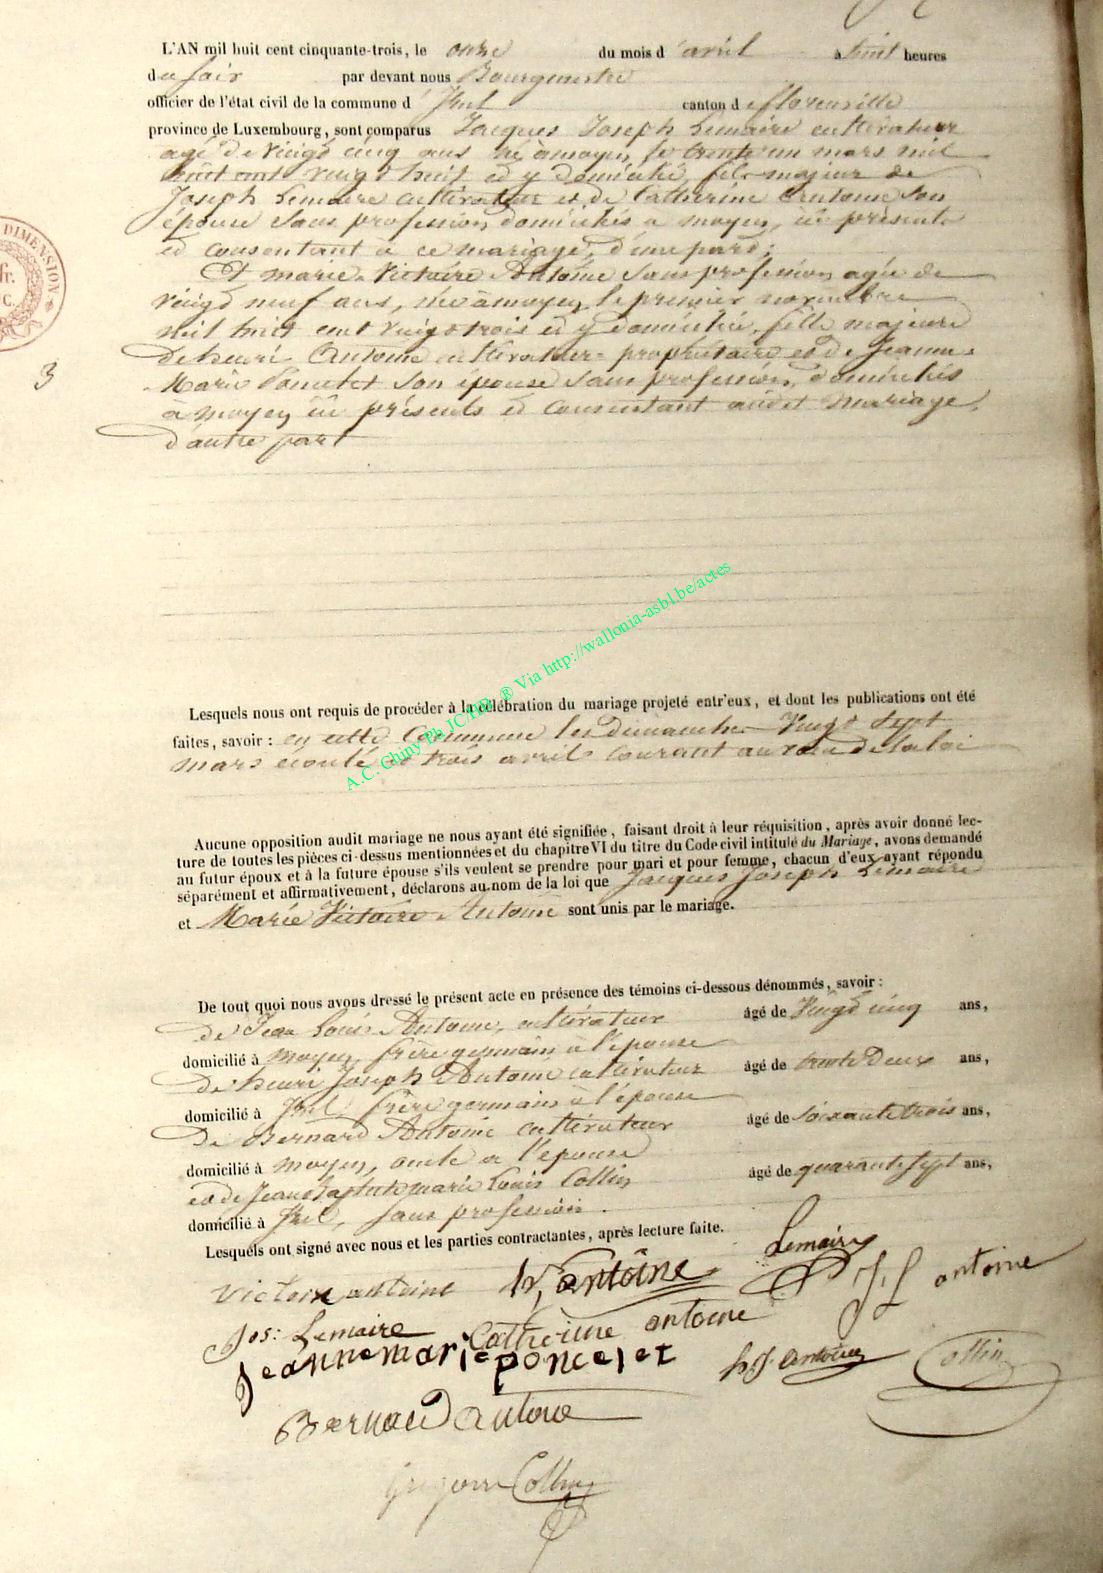 L'AN mil huit cent cinquante-trois, le onze du mois d'avril à huit heures
du soir par devant nous Bourgmestre
officier de l'état civil de la commune d'Izel canton de florenville
province de Luxembourg, sont comparus Jacques Joseph Lemaire cultivateur
agé de vingt cinq ans né à moyen, le trente un mars mil
huit cent vingt huit et y domicilié, fils majeur de
Joseph Lemaire cultivateur et de Catherine Antoine son
épouse sans profession, domiciliés à moyen, ici présents
et consentant à ce mariage, d'une part;
Et marie Victoire Antoine sans profession, agée de
vingt neuf ans, née à moyen, le premier novembre
mil huit cent vingt trois et y domiciliée, fille majeure
de henri Antoine cultivateur propriétaire et de Jeanne
Marie Poncelet son épouse sans profession, domiciliés
à moyen, ici présents et consentant audit mariage,
d'autre part
3
DIMENSION
A.C. Chiny Ph JC/HR ® Via http://wallonia-asbl.be/actes
Lesquels nous ont requis de procéder à la célébration du mariage projeté entr'eux, et dont les publications ont été
faites, savoir : en cette Commune les dimanches Vingt Sept
mars écoulé et trois avril courant au vœu de la loi
Aucune opposition audit mariage ne nous ayant été signifiée, faisant droit à leur réquisition, après avoir donné lec-
ture de toutes les pièces ci-dessus mentionnées et du chapitre VI du titre du Code civil intitulé du Mariage, avons demandé
au futur époux et à la future épouse s'ils veulent se prendre pour mari et pour femme, chacun d'eux ayant répondu
séparément et affirmativement, déclarons au nom de la loi que Jacques Joseph Lemaire
et Marie Victoire Antoine sont unis par le mariage.
De tout quoi nous avons dressé le présent acte en présence des témoins ci-dessous dénommés, savoir :
de Jean Louis Antoine, cultivateur âgé de Vingt cinq ans,
domicilié à moyen, frère germain à l'épouse
de henri Joseph Antoine cultivateur âgé de trente deux ans,
domicilié à Izel, frère germain à l'épouse
De Bernard Antoine cultivateur âgé de soixante trois ans,
domicilié à moyen, oncle à l'épouse
et de Jean Baptiste marie Louis Collin, âgé de quarante sept ans,
domicilié à Izel, sans profession.
Lesquels ont signé avec nous et les parties contractantes, après lecture faite.
Lemaire
Victoire antoine h, antoine J. L antoine
Jos: Lemaire Catherine antoine
Jeannemarie poncelet h J. antoine Collin
Bernard antoine
Collin